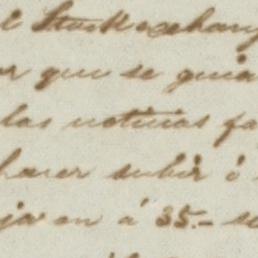 l Stock exchang
or que se guia
las noticias fa
hacer subir ó
jaron á 35.- se